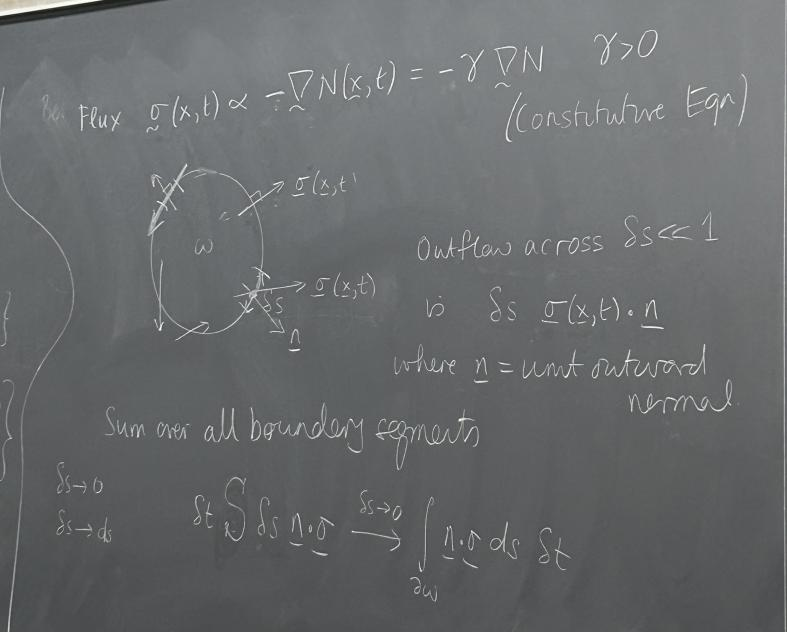 Flux σ(x,t) ∝ -∇N(x,t) = -γ ∇N γ>0
(Constitutive Eqn)
σ(x,t)
ω
σ(x,t)
δs
n
Outflow across δs<<1
is δs σ(x,t)·n
where n = unit outward
normal.
Sum over all boundary segments
δs→0
δs→ds
δt S δs n·σ δs→0 ⟶ ∫∂ω n·σ ds δt